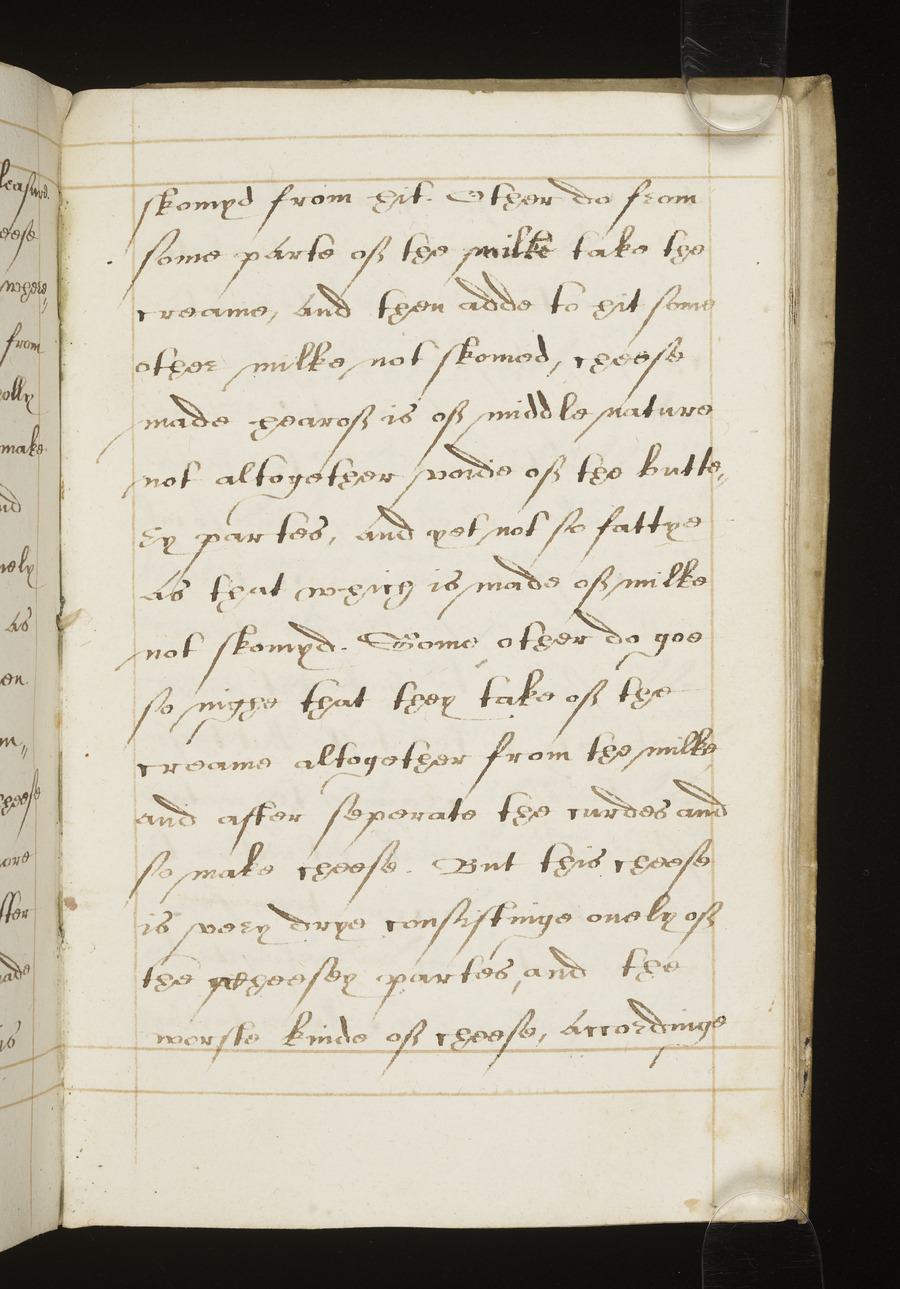 leasure
eese
where-
from
olly
make
nd
nely
as
en
m„
cheese
ore
fter
ade
is
skomyd from hit. Other do from
some parte off the milke take the
creame, and then adde to hit some
other milke not skomed, cheese
made hearoff is off middle nature
not altogether voide off the butte„
ry partes, and yet not so fattye
as that which is made off milke
not skomyd. Some other do goe
so nighe that they take off the
creame altogether from the milke
and after seperate the curdes and
so make cheese. But this cheese
is very drye consistinge onely off
the cheesey partes, and the
worste kinde off cheese, accordinge